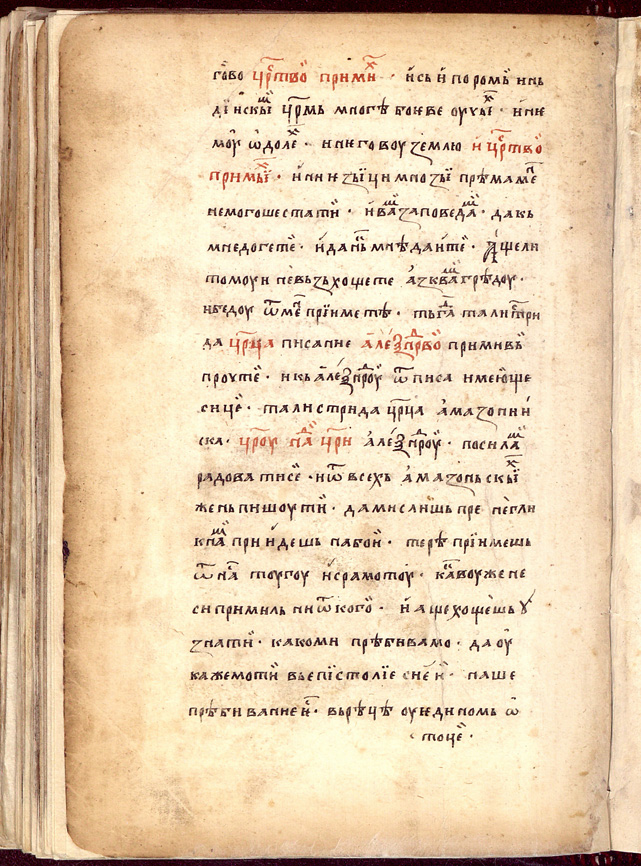 гово црⷭ҇тво примиⷯ · и сь и поромь инь
дїискыⷨ црмь многѣ бокве оучыⷯ · и ни
моу ѡдолеⷯ · и нкговоу землю и црⷭ҇тво
примыⷯ · и ини кзыци мнозы прѣма менⷭ҇
не могоше стати · и ваⷨ заповедаⷨ · да кь
мнедогете · и дань мнѣ даите · Аще ли
томоу и певьзь хощете азь квⷨа грѣдоу ·
и бедоу ѿмене прїимете · тьгⷣа талистри
да црⷪ҇ца писание алеѯⷩ҇дрово примивь
проуте · и кь алеѯⷩ҇дроу ѿписа имеюще
сице · талистрида црⷪ҇ца амазонии
ска · цроу наⷣ цри алеѯⷩ҇дроу · посилаⷨ
радоватисе · и ѿ всехь амазоньскыⷯ
жень пишоу ти · да мислишь пре
кнаⷨ приидешь на бои · тере прїимешь
ѿ наⷭ тоугоу и срамотоу · каⷦ҇воу же не
си примиль ни ѿ кого · и аще хощешь у
знати · како ми прѣбивамо · да оу
кажемо ти вь епїстолїе сеи · наше
прѣбивание к · вь рѣцѣ оу кдиномь ѡ
тоце ·